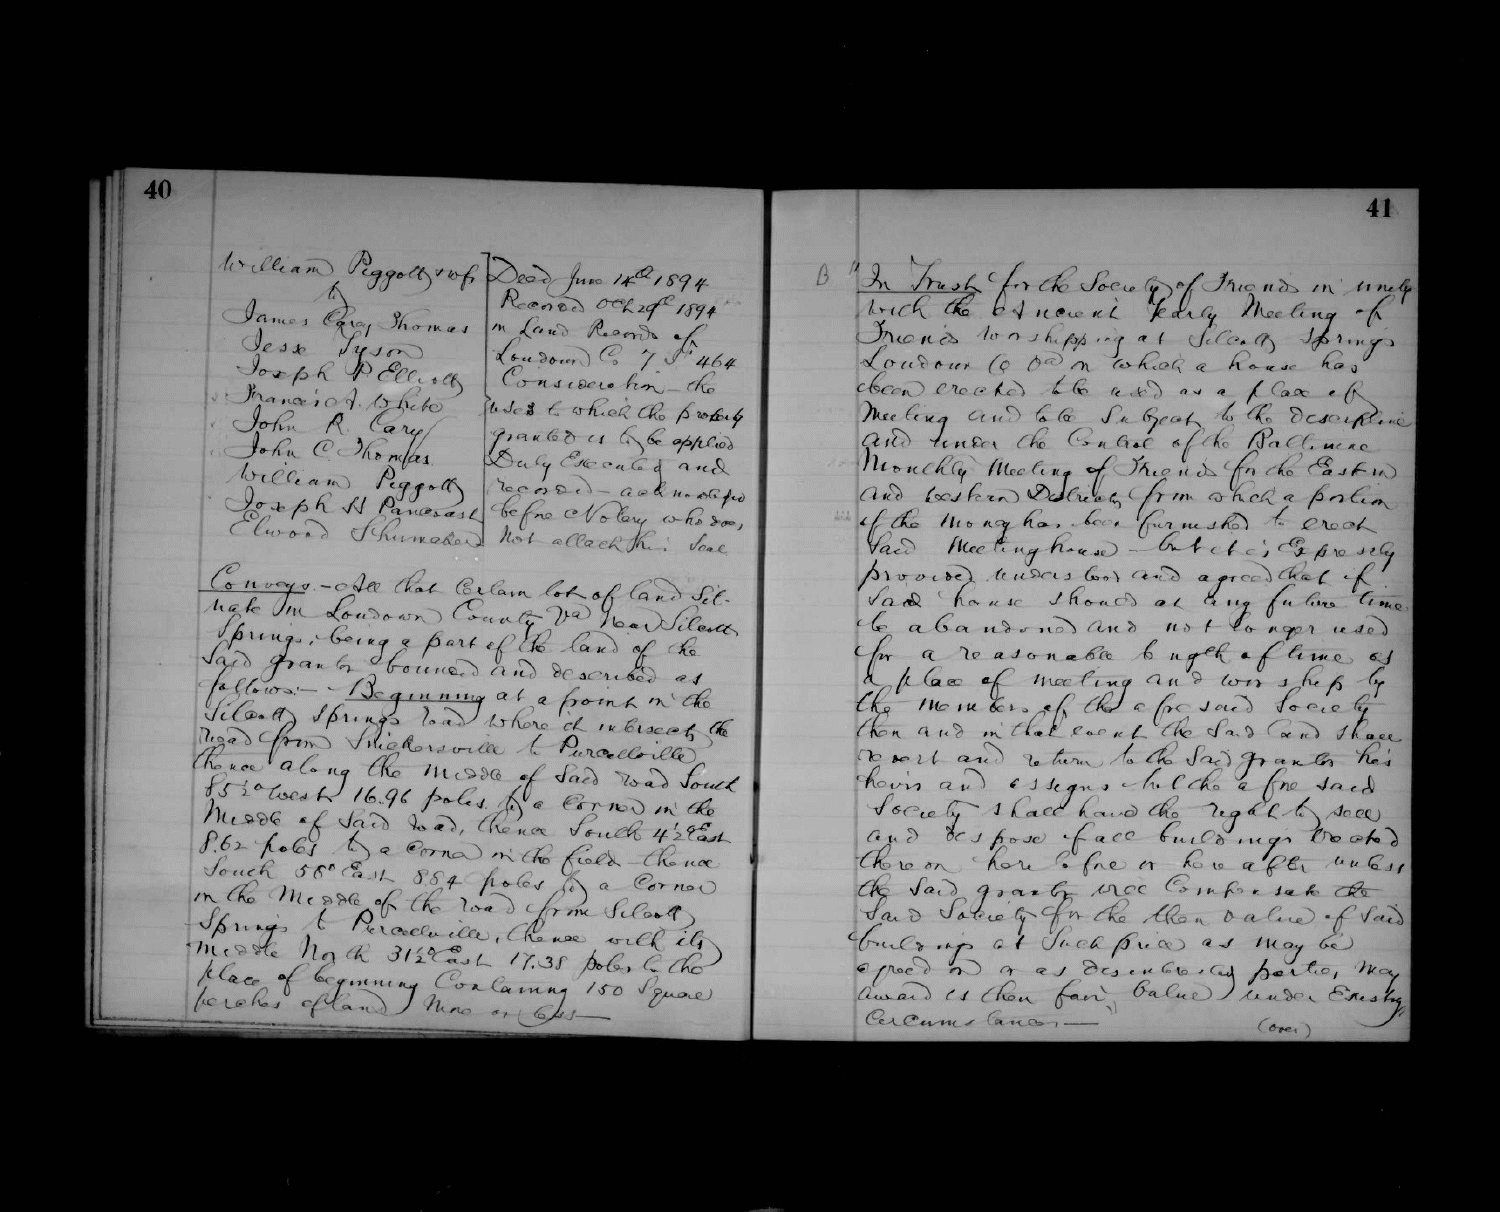 40
William Piggott & wife
to
James Carey Thomas
Jesse Tyson
Joseph P Elliott
Francis T. White
John R. Cary
John C. Thomas
William Piggott
Joseph H Pancoast
Elwood Shumaker
Deed June 14th 1894
Recorded Oct 29th 1894
in Land Records of
Loudoun Co 7 464
Consideration – the
uses to which the property
granted is to be applied
Duly Executed and
recorded – acknowledged
before Notary who does
not attach his Seal
Conveys – All that certain lot of land Sit-
uate in Loudown County Va near Silcott
Springs, being a part of the land of the
Said grantor bounded and described as
follows:– Beginning at a point in the
Silcott Springs road where it intersects the
road from Snickersville to Purcellville
thence along the Middle of Said road South
85½° West 16.96 poles to a corner in the
Middle of Said road, thence South 4½° East
8.62 poles to a corner in the field – thence
South 58° East 8.84 poles to a Corner
in the Middle of the road from Silcott
Springs to Purcellville, thence with its
Middle North 31½° East 17.38 poles to the
place of beginning Containing 150 Square
perches of land More or less —
41
B "In Trust for the Society of Friends in unity
with the Ancient Yearly Meeting of
Friends worshipping at Silcott Springs
Loudoun Co Va on which a house has
been erected to be used as a place of
Meeting and to be Subject to the discipline
and under the Control of the Baltimore
Monthly Meeting of Friends for the Eastern
and Western Districts from which a portion
of the Money has been furnished to erect
Said Meeting house – but it is Expressly
provided understood and agreed that if
Said house should at any future time
be abandoned and not longer used
for a reasonable length of time as
a place of meeting and worship by
the members of the aforesaid Society
then and in that event the Said land shall
revert and return to the Said grantor his
heirs and assigns but the aforesaid
Society shall have the right to sell
and dispose of all buildings Erected
thereon heretofore or hereafter unless
the Said grantor will Compensate the
Said Society for the then value of Said
buildings at Such price as may be
agreed on or as disinterested parties may
award is then fair value under Existing
Circumstances —"
(over)